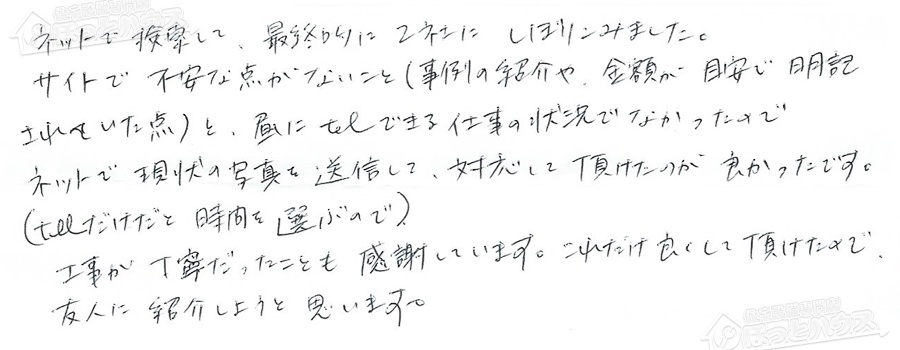 ネットで検索して、最終的に2社にしぼりこみました。
サイトで不安な点がないこと(事例の紹介や、金額が目安で明記
されていた点)と、昼にtelできる仕事の状況でなかったので
ネットで現状の写真を送信して、対応して頂けたのが良かったです。
(telだけだと時間を選ぶので)
工事が丁寧だったことも感謝しています。これだけ良くして頂けたので、
友人に紹介しようと思います。
ほっとハウス